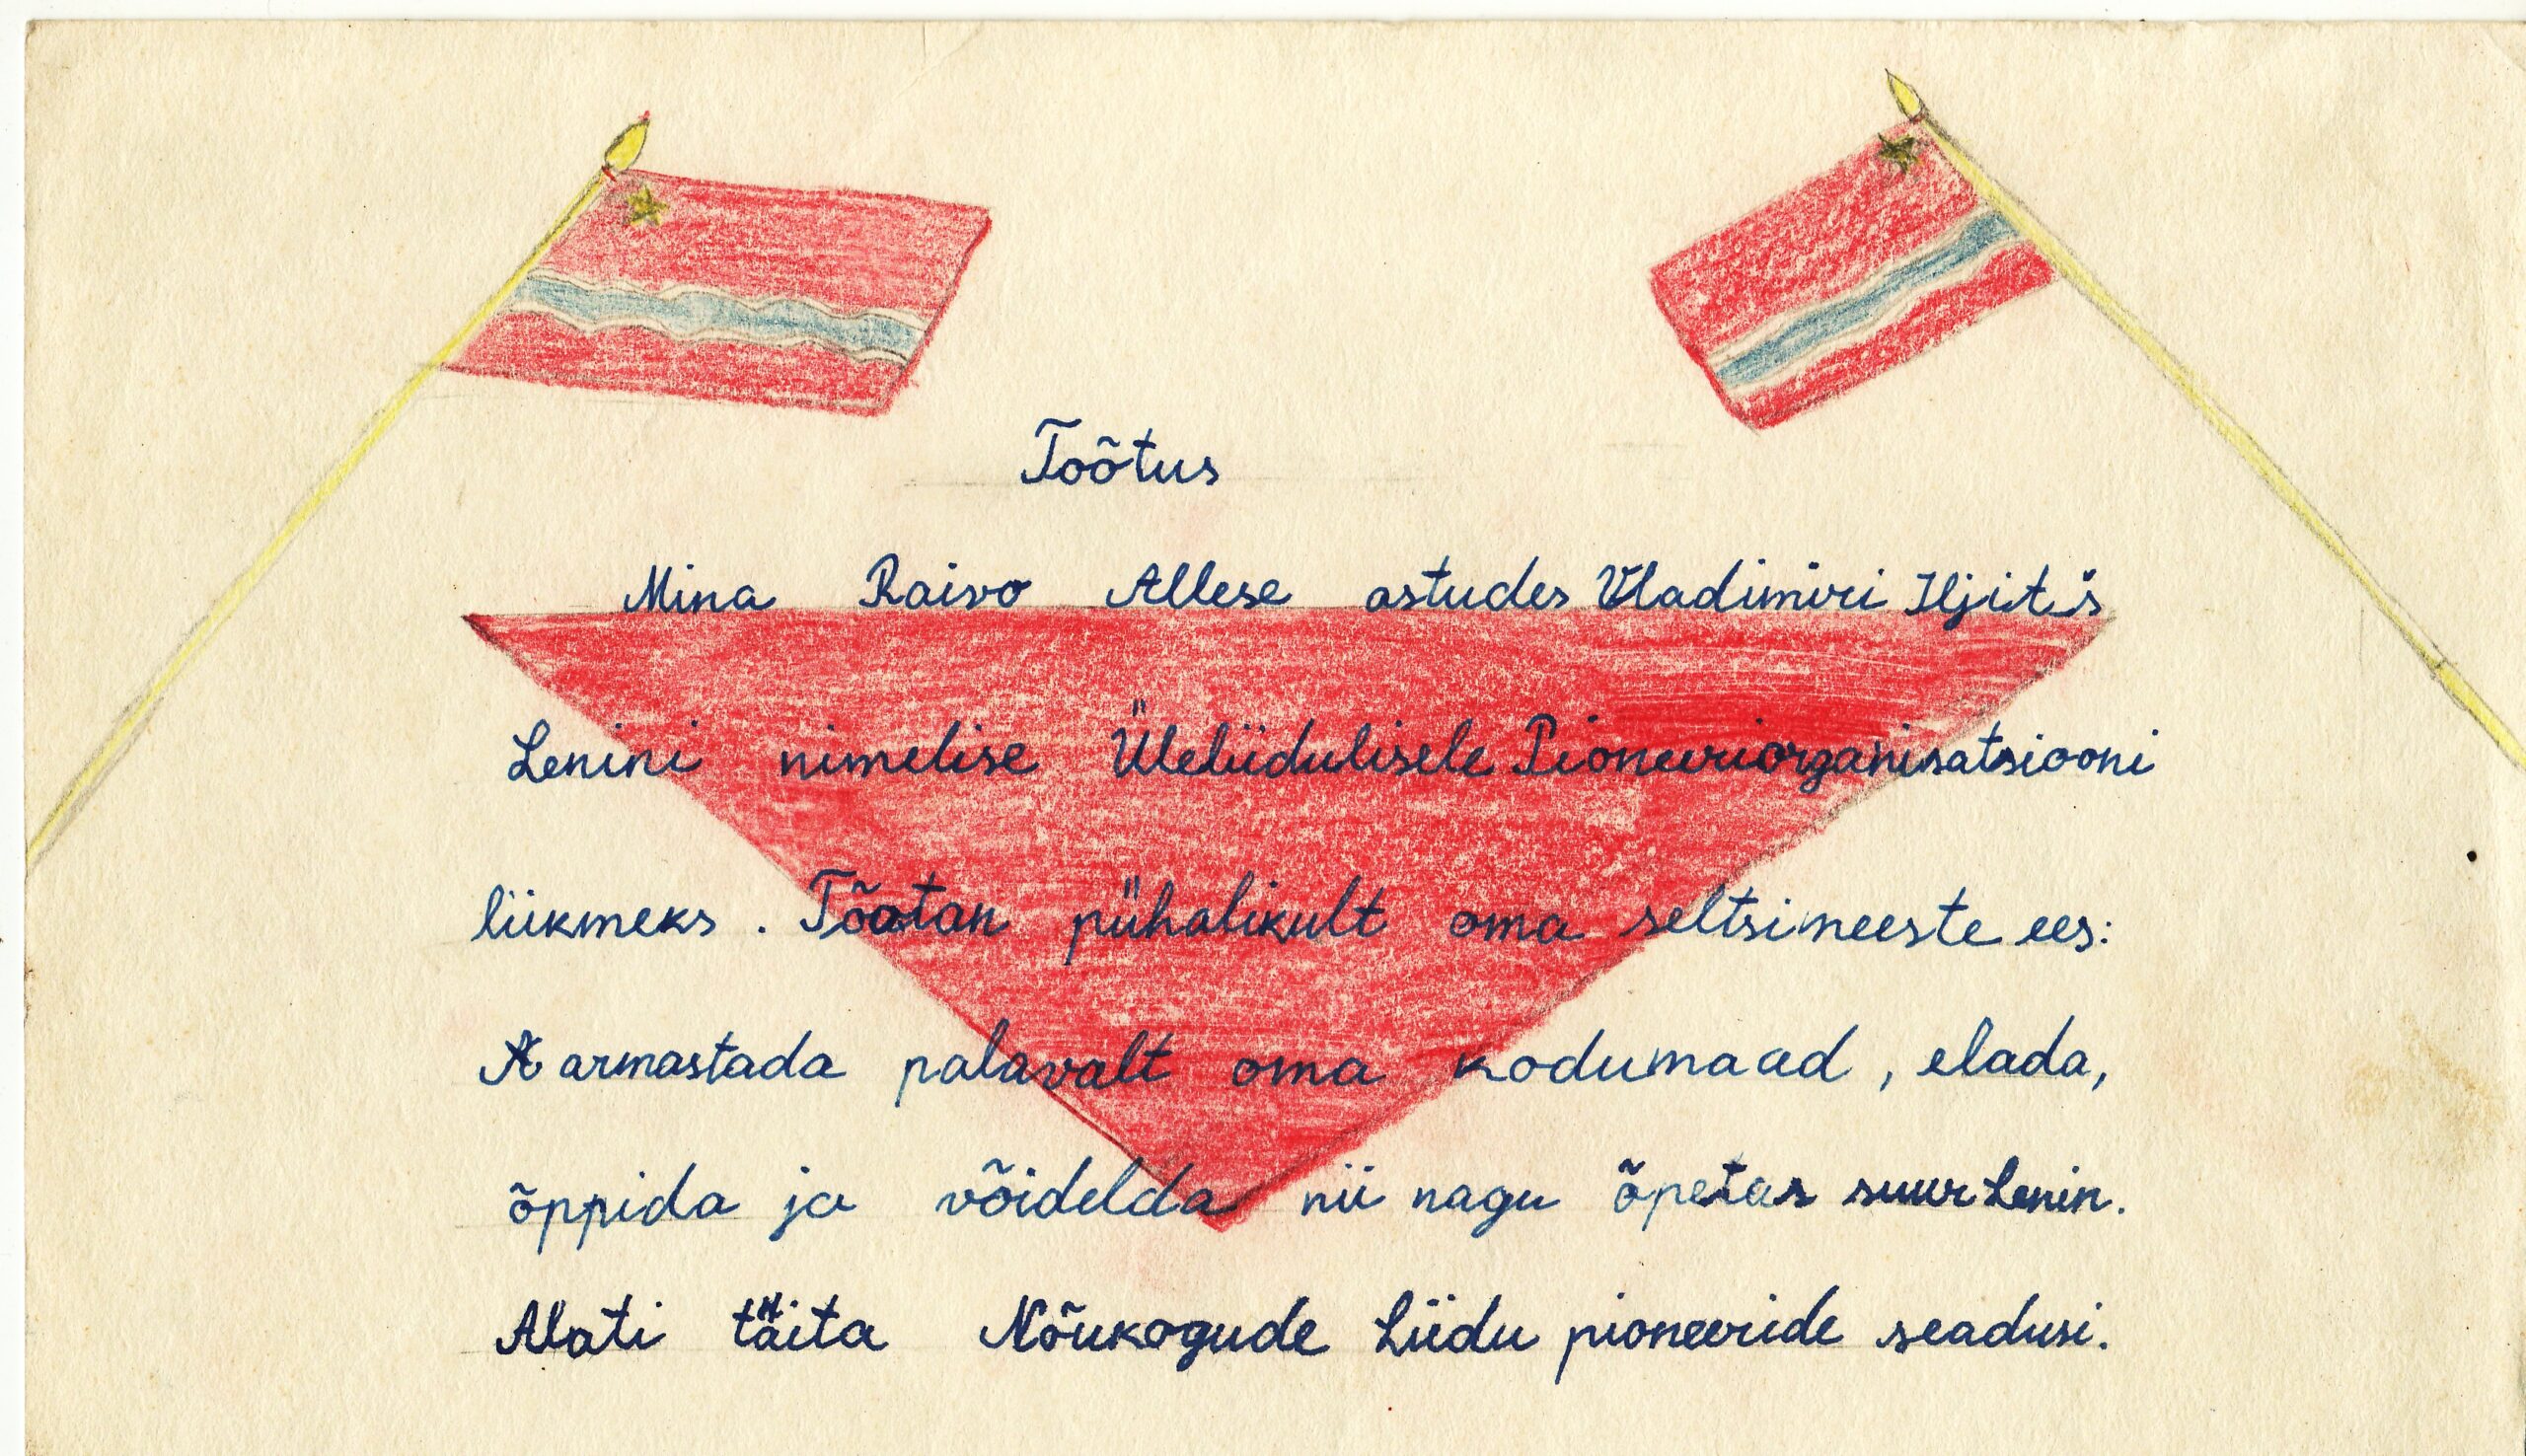 Toõtus
Mina Raivo Allese astudes Vladimiri Iljitš
Lenini nimelise Üleliidulisele Pioneeriorganisatsiooni
liikmeks. Tõotan pühalikult oma seltsimeeste ees:
A armastada palavalt oma kodumaad, elada,
õppida ja võidelda nii nagu õpetas suur Lenin.
Alati täita Nõukogude Liidu pioneeride seadusi.